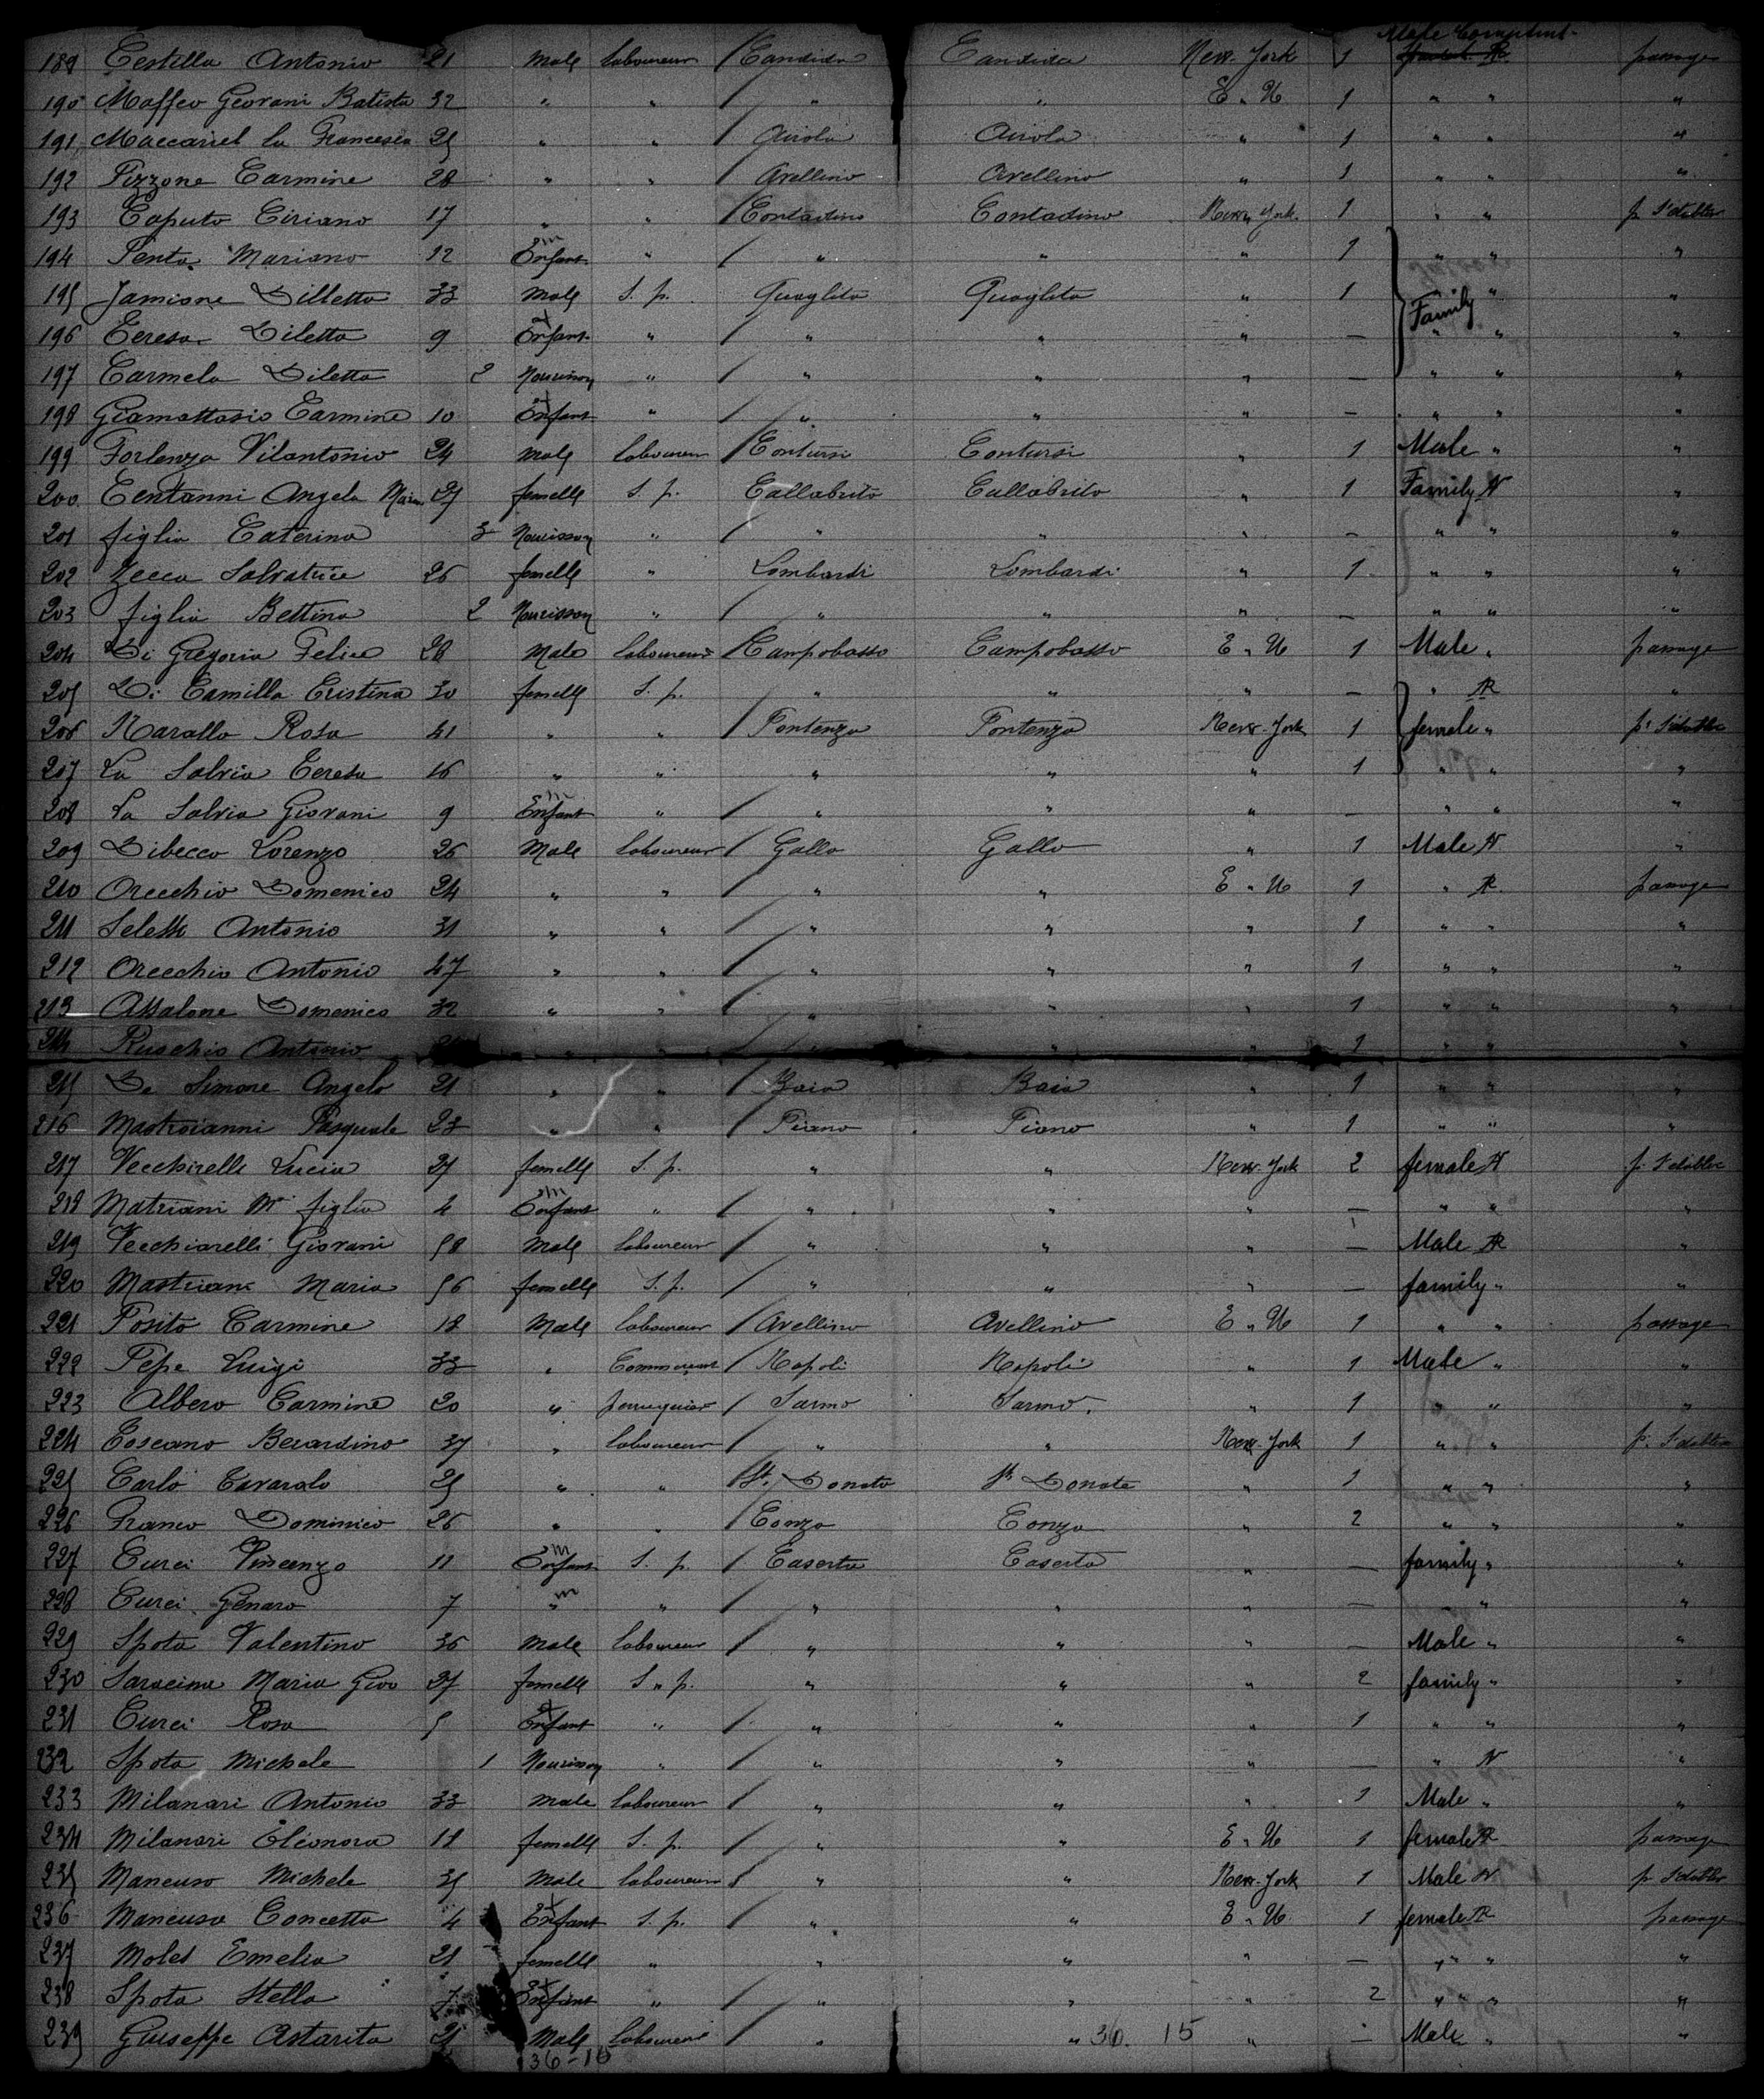 Male Compartment
189 Testilla Antonio 21 Male laboureur Candida Candida New-York 1 passage
190 Maffeo Geovani Batista 32 " " " " E. U 1 " " "
191 Maccariel la Francesca 25 " " Airola Airola " 1 " " "
192 Pizzone Carmine 28 " " Avellino Avellino " 1 " " "
193 Caputo Ciriano 17 " " Contadino Contadino New York 1 " " p. S'etablir
194 Penta Mariano 12 m Enfant " " " " 1 " " "
195 Jamione Dilletta 33 Male S. p. Quaglita Quaglita " 1 Family " "
196 Teresa Diletta 9 Enfant " " " " — " " "
197 Carmela Diletta 2 Nourisson " " " " — " " "
198 Giamattasio Carmine 10 Enfant " " " " — " " "
199 Forlenza Vilantonio 24 Male laboureur Contursi Contursi " 1 Male " "
200 Centanni Angela Maria 27 femelle S. p. Callabrito Callabrito " 1 Family N "
201 figlia Caterina 3 Nourisson " " " " — " " "
202 Zecca Salvatrice 26 femelle " Lombardi Lombardi " 1 " " "
203 figlia Bettina 2 Nourisson " " " " — " " "
204 Di Gregorio Felice 28 Male laboureur Campobasso Campobasso E. U 1 Male " passage
205 Di Camilla Cristina 30 femelle S. p. " " " — " R "
206 Narallo Rosa 41 " " Pontenza Pontenza New-York 1 female " p. S'etablir
207 La Salvia Teresa 16 " " " " " 1 " " "
208 La Salvia Giovani 9 m Enfant " " " " — " " "
209 Dibecco Lorenzo 26 Male laboureur Gallo Gallo " 1 Male N "
210 Orecchio Domenico 24 " " " " E. U 1 " R passage
211 Seletti Antonio 31 " " " " " 1 " " "
212 Orecchio Antonio 47 " " " " " 1 " " "
213 Assalone Domenico 32 " " " " " 1 " " "
214 Ruschio Antonio " " " " " 1 " " "
215 De Simone Angelo 21 " " Baia Baia " 1 " " "
216 Mastroianni Pasquale 23 " " Piano Piano " 1 " " "
217 Vecchirelli Lucia 27 femelle S. p. " " New-York 2 female N p. S'etablir
218 Matriani Ma figlia 4 m Enfant " " " " — " " "
219 Vecchiarelli Giovani 58 Male laboureur " " " — Male R "
220 Mastriani Maria 56 femelle S. p. " " " — family " "
221 Posito Carmine 18 Male laboureur Avellino Avellino E. U 1 " " passage
222 Pepe Luigi 33 " Commercant Napoli Napoli " 1 Male " "
223 Albero Carmine 20 " perruquier Sarno Sarno. " 1 " " "
224 Toscano Berardino 37 " laboureur " " New-York 1 " " p. S'etablir
225 Carlo Cavarolo 25 " " St. Donato St Donate " 1 " " "
226 Franco Dominico 26 " " Conza Conza " 2 " " "
227 Curci Vincenzo 11 m Enfant S. p. Caserta Caserta " — family " "
228 Curci Genaro 7 m " " " " " — " " "
229 Spota Valentino 36 Male laboureur " " " — Male " "
230 Saracina Maria Giov 27 femelle S. p. " " " 2 family " "
231 Curci Rosa 5 Enfant " " " " 1 " " "
232 Spota Michele 1 Nourisson " " " " — " N "
233 Milanari Antonio 33 Male laboureur " " " 1 Male " "
234 Milanari Eléonora 18 femelle S. p. " " E. U 1 female R passage
235 Mancuso Michele 35 Male laboureur " " New-York 1 Male N p. S'etablir
236 Mancusa Concetta 4 Enfant S. p. " " E. U. 1 female R passage
237 Moles Emelia 21 femelle " " " " — " " "
238 Spota Stella 7 Enfant " " " " 2 " " "
239 Giuseppe Astarita 25 Male laboureur " " " — Male " "
36-15 36. 15